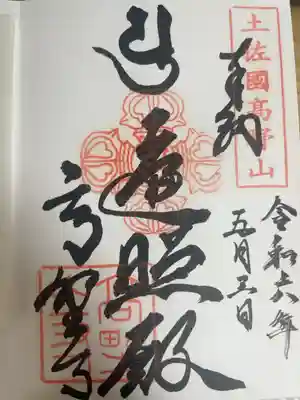 土佐國髙野山
奉納
令和六年
五月三日
遍照殿
高野寺